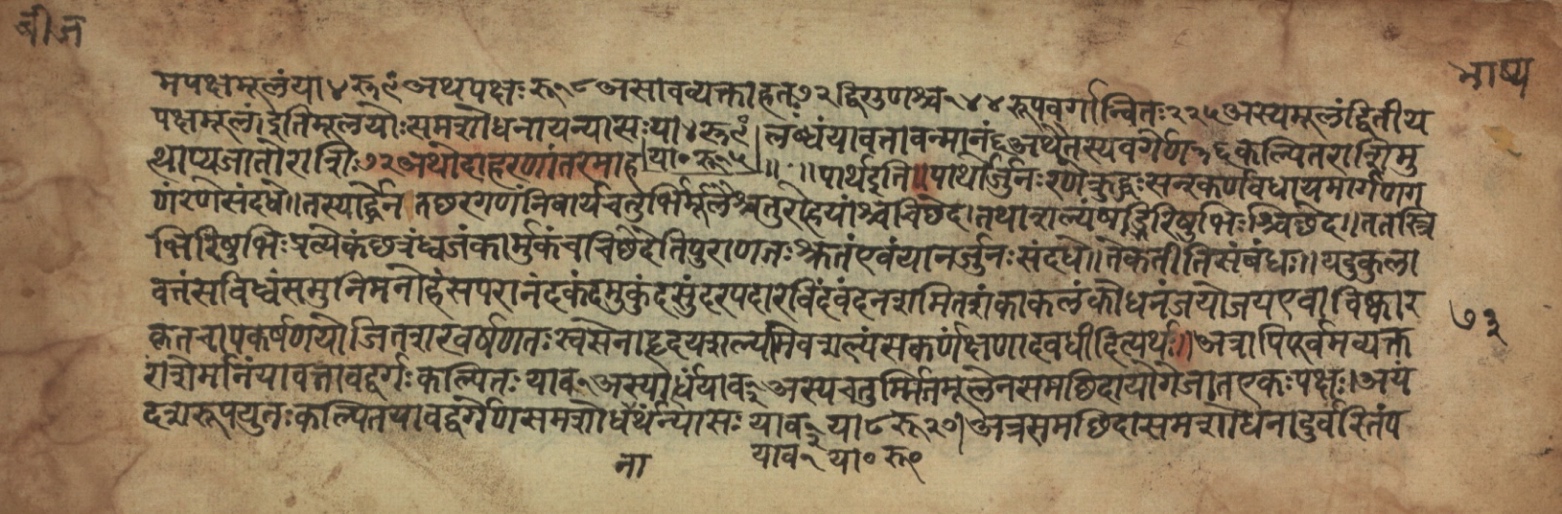 बीज
भाष्य
मपक्षमूलंया४रू९ंअथपक्षःरू१८असावव्यक्ताहतः७२द्विगुणश्च१४४रूपवर्गान्वितः२२५अस्यमूलंद्वितीय
पक्षमूलं।द्वतिमूलयोःसमशोधनायन्यासःया४रू९ं लब्धंयावत्तावन्मानं६अथैतस्यवर्गेण३६कल्पितराशिमु
त्थाप्यजातोराशिः७२अथोदाहरणांतरमाह या०रू१५॥ ॥पार्थइति॥पार्थोर्जुनःरणेक्रुद्धःसन्कर्णवधायमार्गणग
णंरणेसंदधे॥तस्यार्द्धेन तछरगणंनिवार्यचतुर्भिर्मूलैश्चतुरोहयांश्चचिछेद।तथाशल्यंषड्भिरिषुभिःश्चिछेद॥ततस्त्रि
भिरिषुभिःप्रत्येकंछत्रंध्वजंकार्मुकंचचिछेदेतिपुराणजःश्रुतंएवंयानर्जुनःसंदधे॥तेकतीतिसंबंधः॥यदुकुला
वतंसविध्वंसमुनिमनोहंसपरानंदकंदमुकुंदसुंदरपदारविंदवंदनशमितशंकाकलंकोधनंजयोजयएवाविष्कार
कृतचापकर्षणयोजितशरवर्षणतःस्वसेनाहृदयशल्यमिवशल्यंसकर्णंक्षणादवधीदित्यर्थः॥अत्रापिपूर्वमव्यक्त
राशेर्मानंयावत्तावद्वर्गःकल्पितःयाव१अस्यार्धंयाव१अस्यचतुर्मितमूलेनसमछिदायोगेजातएकःपक्षः।अयं
दशरूपयुतःकल्पितयावद्वर्गेणसमशोधंर्थन्यासः याव१ या८रू२०।अत्रसमछिदासमशोधनादुर्वरितंप
याव१ या०रू०
ना
७३